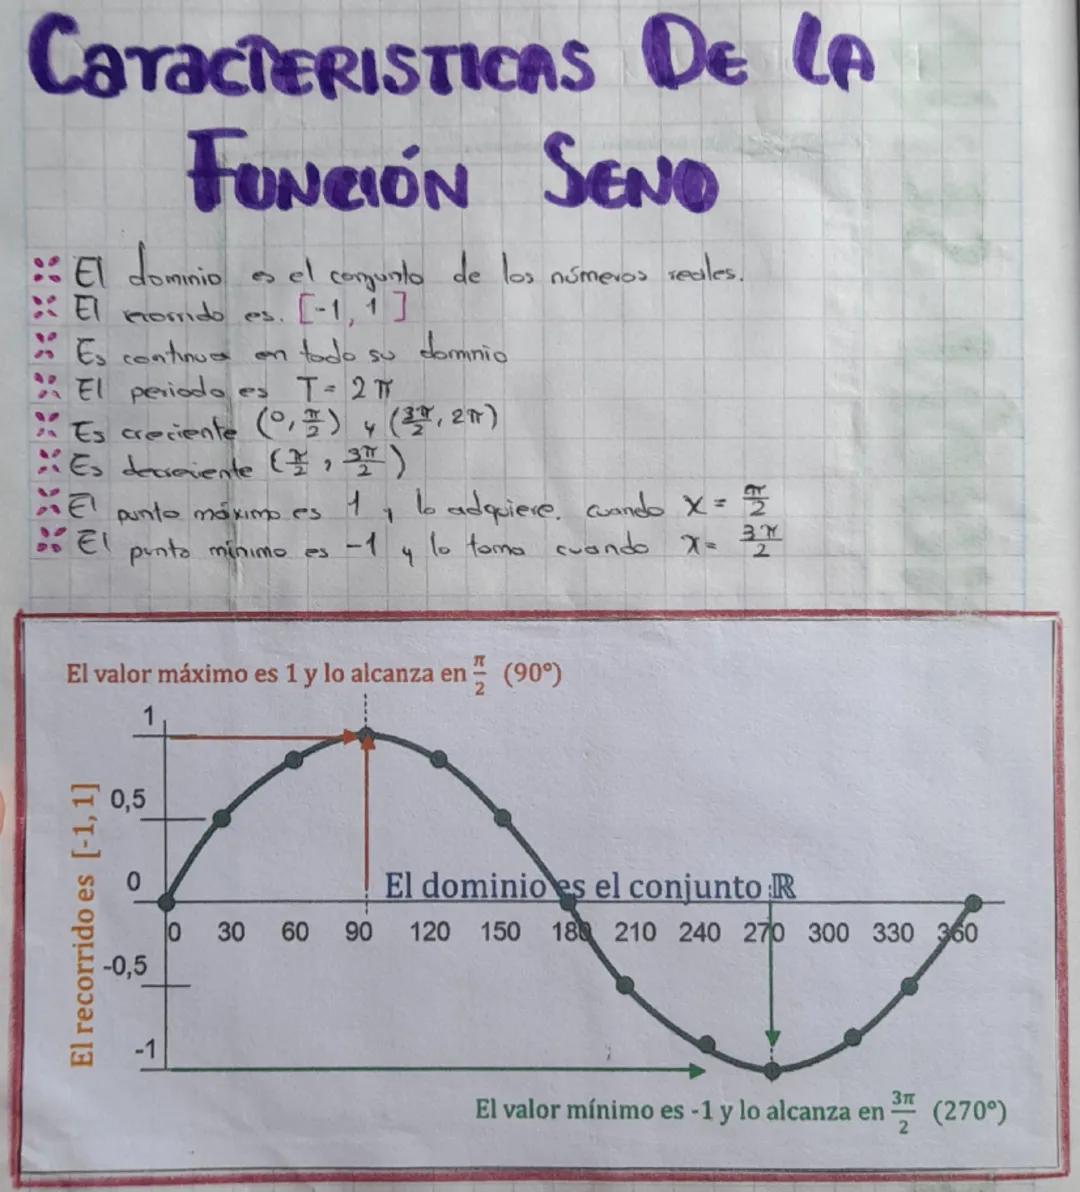 CARACTERISTICAS DE LA
FUNCIÓN SENO
El dominio es el conjunto de los números reales.
El recorrido es. [-1, 1]
Es continua en todo su dominio
El periodo es T = 2π
Es creciente (0, π/2) y (3π/2, 2π)
Es decreciente (π/2, 3π/2)
El punto máximo es 1 y lo adquiere. cuando x = π/2
El punto mínimo es -1 y lo toma cuando x = 3π/2
El valor máximo es 1 y lo alcanza en π/2 (90°)
1
0,5
0
-0,5
-1
El recorrido es [-1, 1]
El dominio es el conjunto ℝ
0 30 60 90 120 150 180 210 240 270 300 330 360
El valor mínimo es -1 y lo alcanza en 3π/2 (270°)